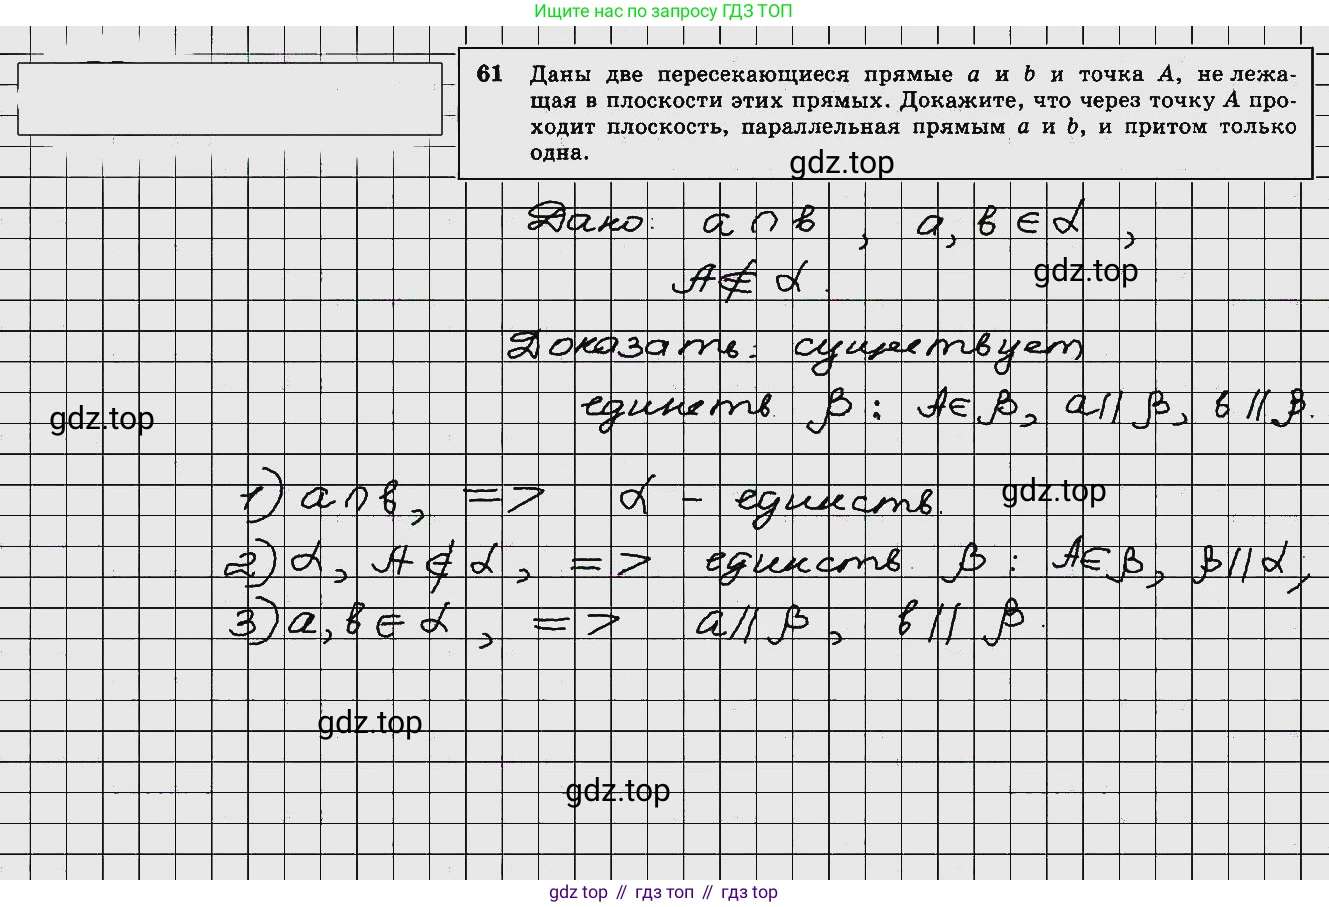 Ищите нас по запросу ГДЗ ТОП
61 Даны две пересекающиеся прямые a и b и точка A, не лежа-
щая в плоскости этих прямых. Докажите, что через точку A про-
ходит плоскость, параллельная прямым a и b, и притом только
одна.
gdz.top
Дано: a ∩ b , a, b ∈ α ,
A ∉ α .
gdz.top
Доказать: существует
единств. β : A ∈ β, a // β, b // β.
gdz.top
1) a ∩ b, => α - единств.
gdz.top
2) α, A ∉ α, => единств. β : A ∈ β, β // α,
3) a, b ∈ α , => a // β, b // β.
gdz.top
gdz.top
gdz top // гдз топ // гдз top